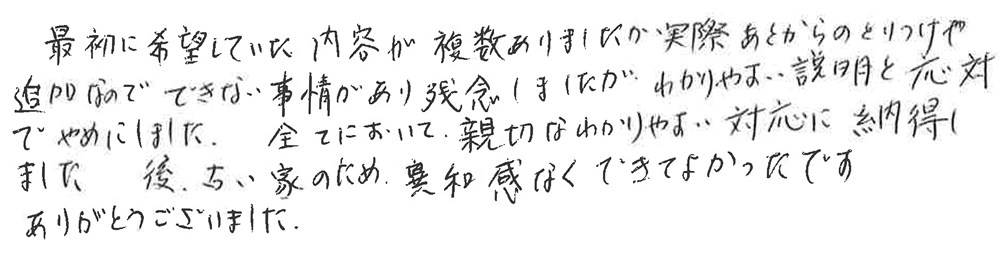 最初に希望していた内容が複数ありましたが実際あとからのとりつけや
追加なのでできない事情があり残念しましたが わかりやすい説明と応対
でやめにしました. 全てにおいて、親切なわかりやすい対応に納得し
ました 後、古い家のため、異和感なくできてよかったです
ありがとうございました.